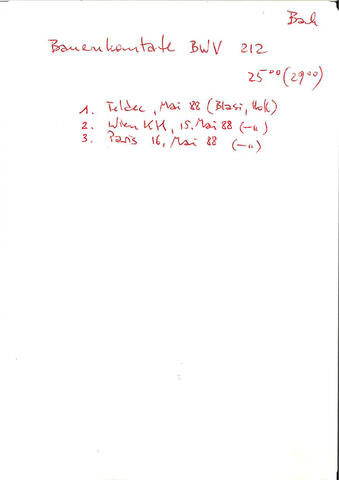 Bach
Bauernkantate BWV 212
25°° (29°°)
1. Teldec, Mai 88 (Blasi, Holl)
2. Wien KH, 15. Mai 88 (–"–)
3. Paris 16. Mai 88 (–"–)